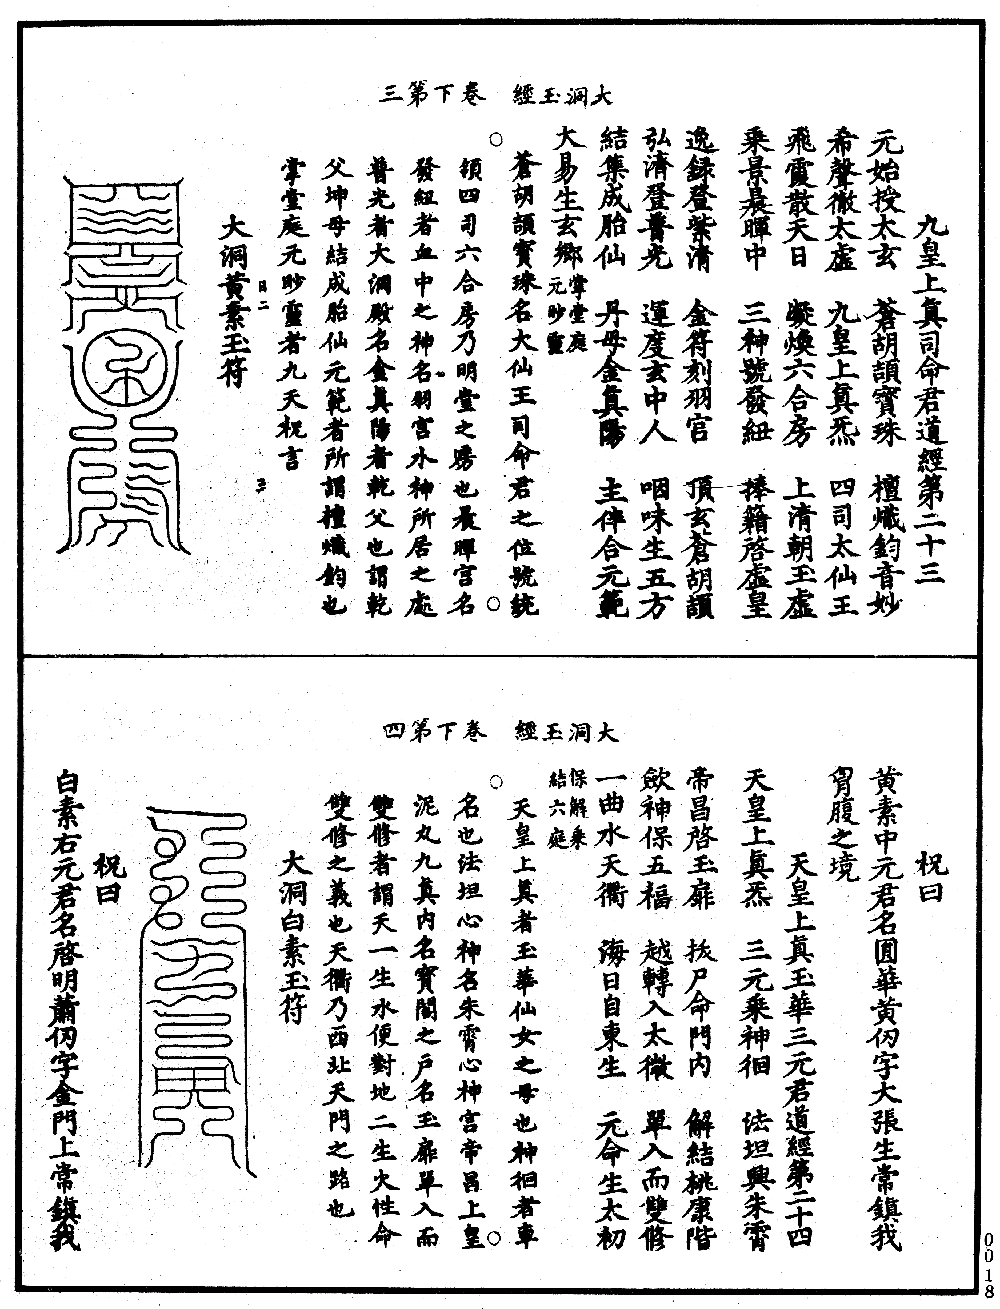 大洞玉經　卷下第三
九皇上真司命君道經第二十三
元始授太玄　蒼胡頡寶珠　檀熾鈞音妙
希聲徹太虛　九皇上真炁　四司太仙王
飛霞散天日　凝煥六合房　上清朝玉虛
乘景晨暉中　三神號發紐　捧籍啓虛皇
逸録登紫清　金符刻羽官　頂玄蒼胡頡
弘濟登普光　運度玄中人　咽味生五方
結集成胎仙　丹母金真陽　主伴合元範
大易生玄鄉　掌堂庭元眇靈
蒼胡頡寶珠名大仙王司命君之位號統
領四司六合房乃明堂之𦢊也晨暉宮名
發紐者血中之神名羽宮水神所居之處
普光者大洞殿名金真陽者乾父也謂乾
父坤母結成胎仙元範者所謂檀熾鈞也
掌堂庭元眇靈者九天祝言
大洞黃素玉符
日二
三
大洞玉經　卷下第四
祝曰
黃素中元君名圓華黃仭字大張生常鎮我
胷腹之境
天皇上真玉華三元君道經第二十四
天皇上真炁　三元乘神徊　法坦興朱霄
帝昌啓玉扉　拔尸命門內　解結桃康階
歛神保五福　越轉入太微　單入而雙修
一曲水天衢　海日自東生　元命生太初
保解乘結六庭
天皇上真者玉華仙女之母也神徊者車
名也法坦心神名朱霄心神宮帝昌上皇
泥丸九真內名寶閣之戶名玉扉單入而
雙修者謂天一生水便對地二生火性命
雙修之義也天衢乃西北天門之路也
大洞白素玉符
祝曰
白素右元君名啓明蕭仭字金門上常鎮我
0018